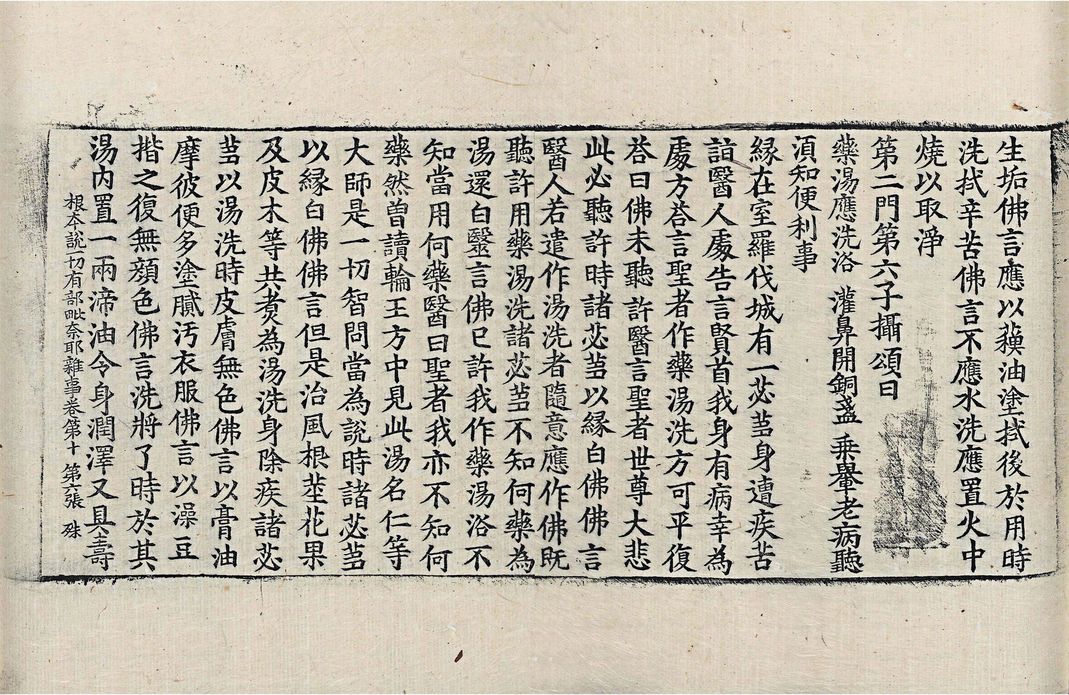 生垢佛言應以䕸油塗拭後於用時
洗拭辛苦佛言不應水洗應置火中
燒以取淨
第二門第六子攝頌曰
藥湯應洗浴 灌鼻開銅盞 乘轝老病聽
湏知便利事
緣在室羅伐城有一苾芻身遭疾苦
詣醫人處告言賢首我身有病幸為
處方荅言聖者作藥湯洗方可平復
荅曰佛未聽許醫言聖者世尊大悲
此必聽許時諸苾芻以緣白佛佛言
醫人若遣作湯洗者隨意應作佛既
聽許用藥湯洗諸苾芻不知何藥為
湯還白醫言佛已許我作藥湯浴不
知當用何藥醫曰聖者我亦不知何
藥然曾讀輪王方中見此湯名仁等
大師是一切智問當為說時諸苾芻
以緣白佛佛言但是治風根莖花果
及皮木等共煑為湯洗身除疾諸苾
芻以湯洗時皮膚無色佛言以膏油
摩彼便多塗膩汚衣服佛言以澡豆
揩之復無顏色佛言洗將了時於其
湯內置一兩渧油令身潤澤又具壽
根本說一切有部毗奈耶雜事卷第十 第六張 殊